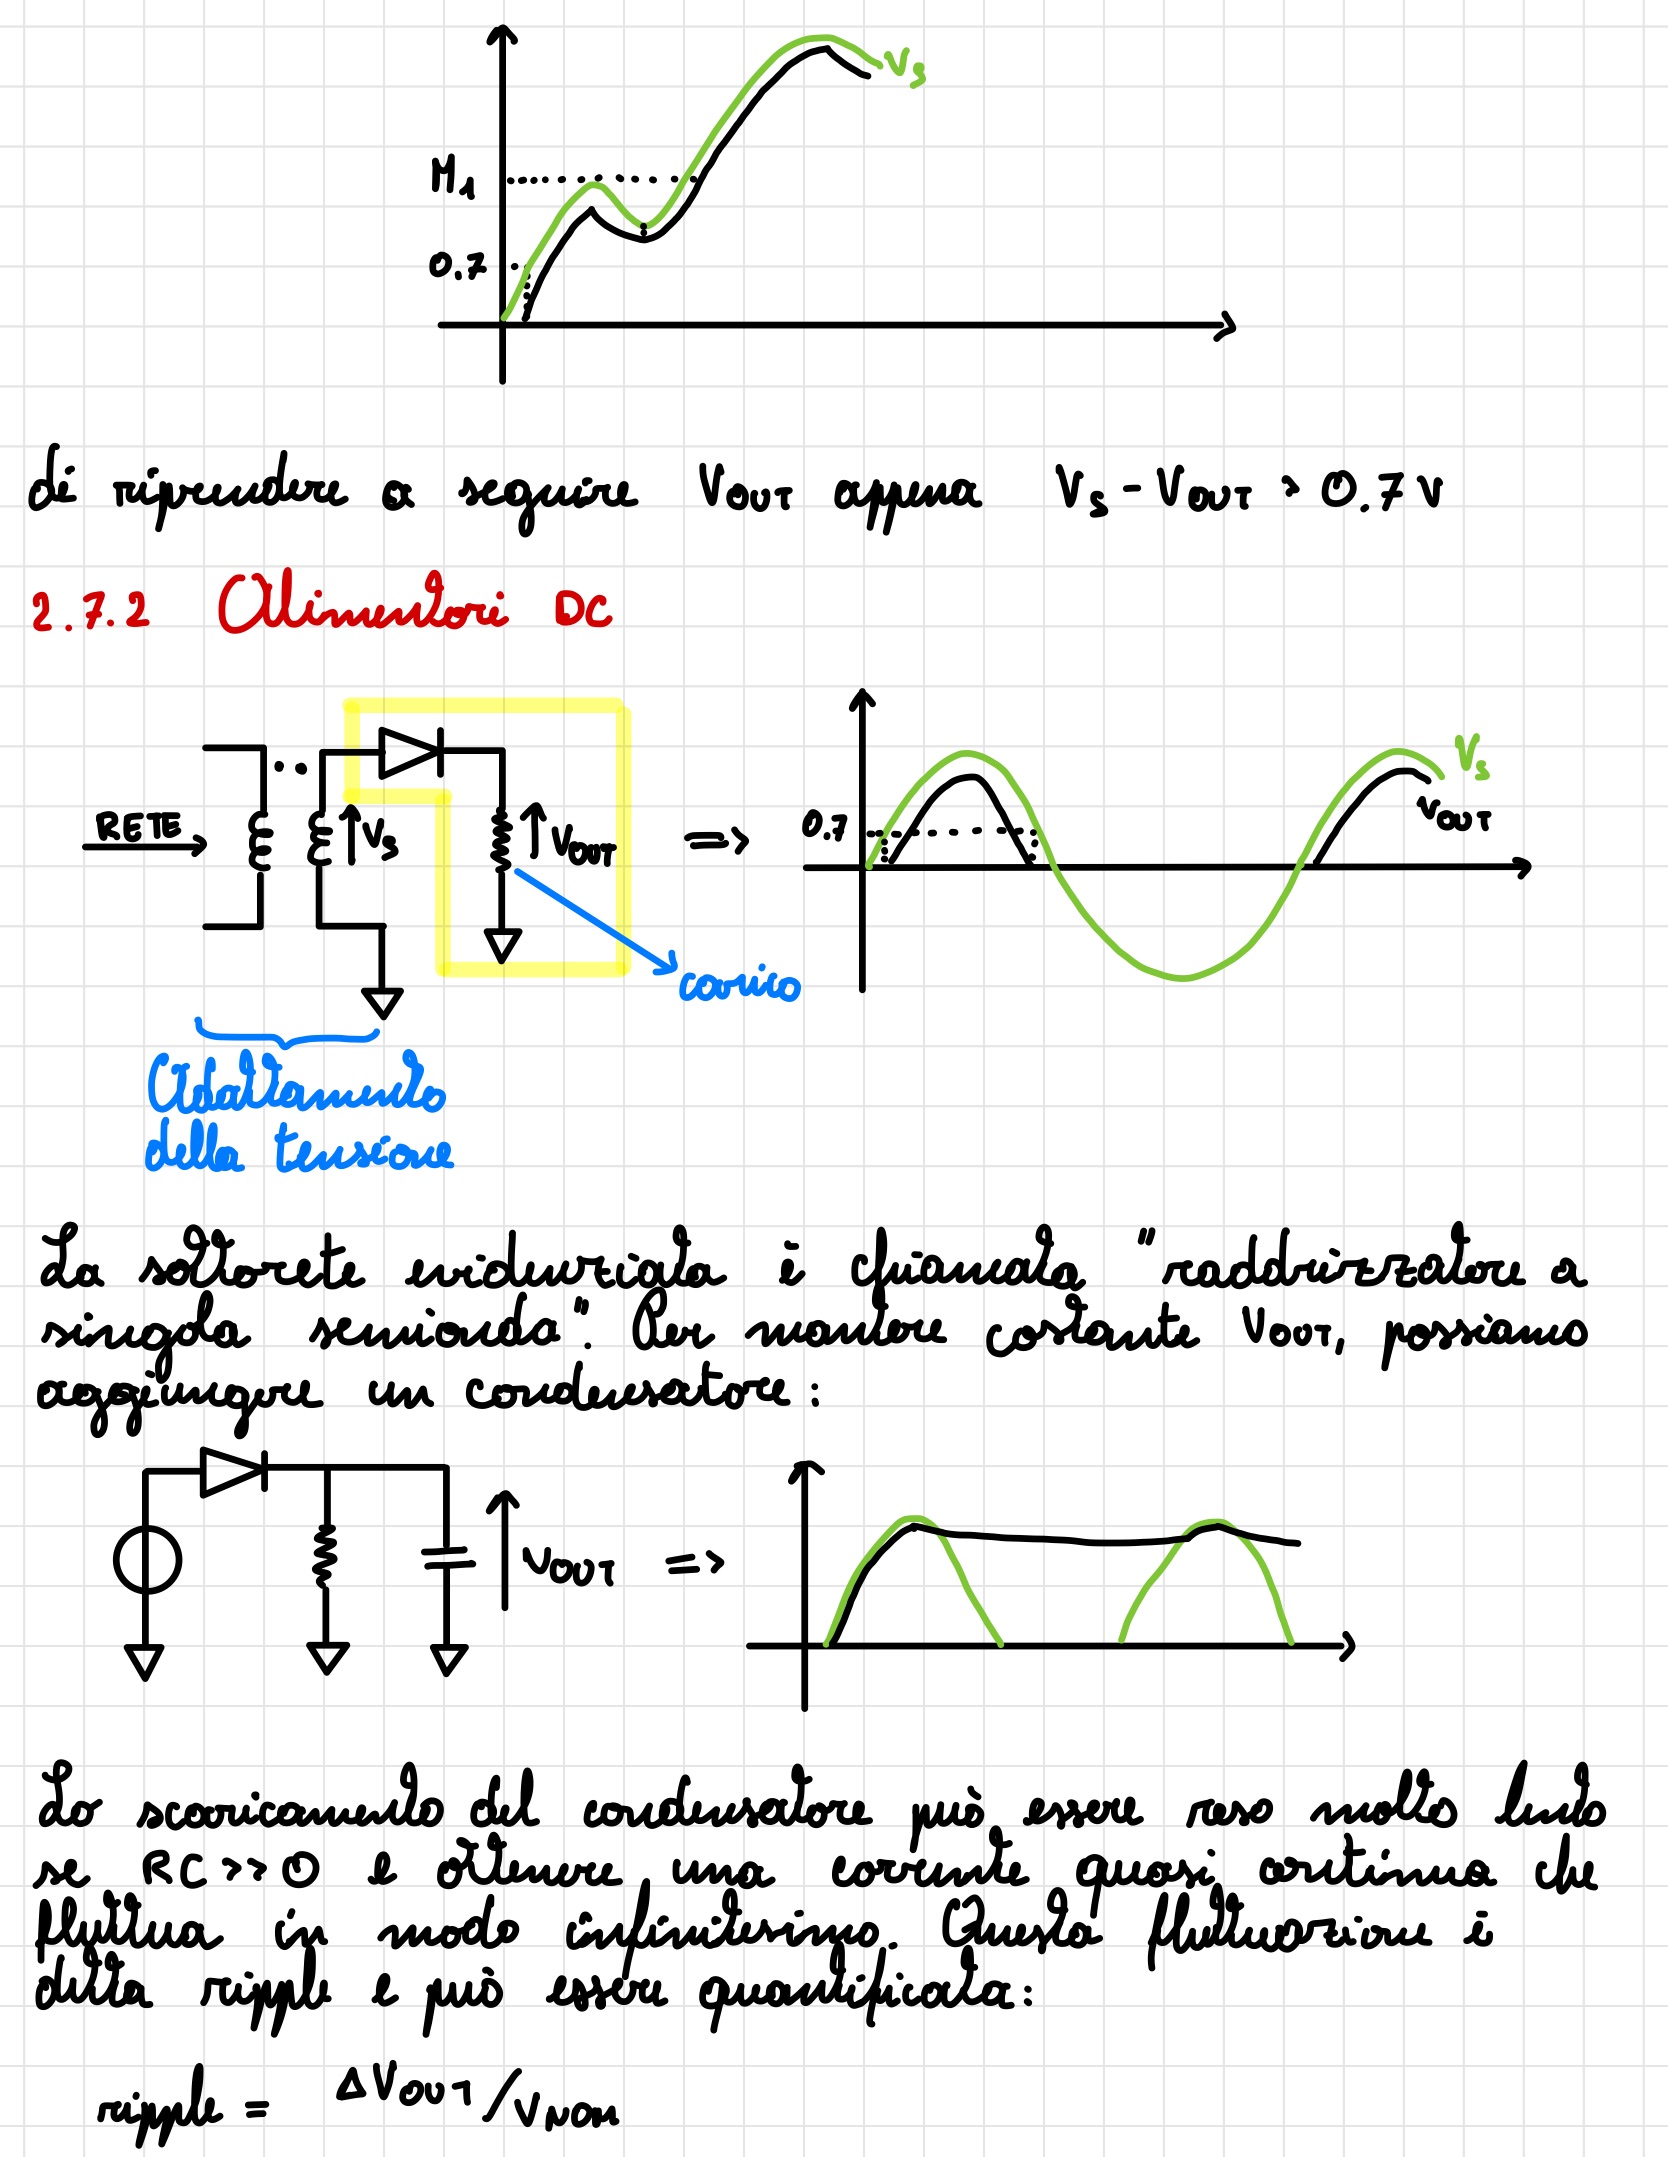 Vs
M1
0.7
di riprendere a seguire VOUT appena Vs - VOUT > 0.7 V
2.7.2 Alimentori DC
Vs
RETE
Vs
VOUT
=>
0.7
VOUT
carico
Adattamento
della tensione
La sottorete evidenziata è chiamata "raddrizzatore a
singola semionda". Per mantere costante VOUT, possiamo
aggiungere un condensatore:
VOUT =>
Lo scaricamento del condensatore può essere reso molto lento
se RC >> 0 e ottenere una corrente quasi continua che
fluttua in modo infinitesimo. Questa fluttuazione è
detta ripple e può essere quantificata:
ripple = ΔVOUT/VNOM